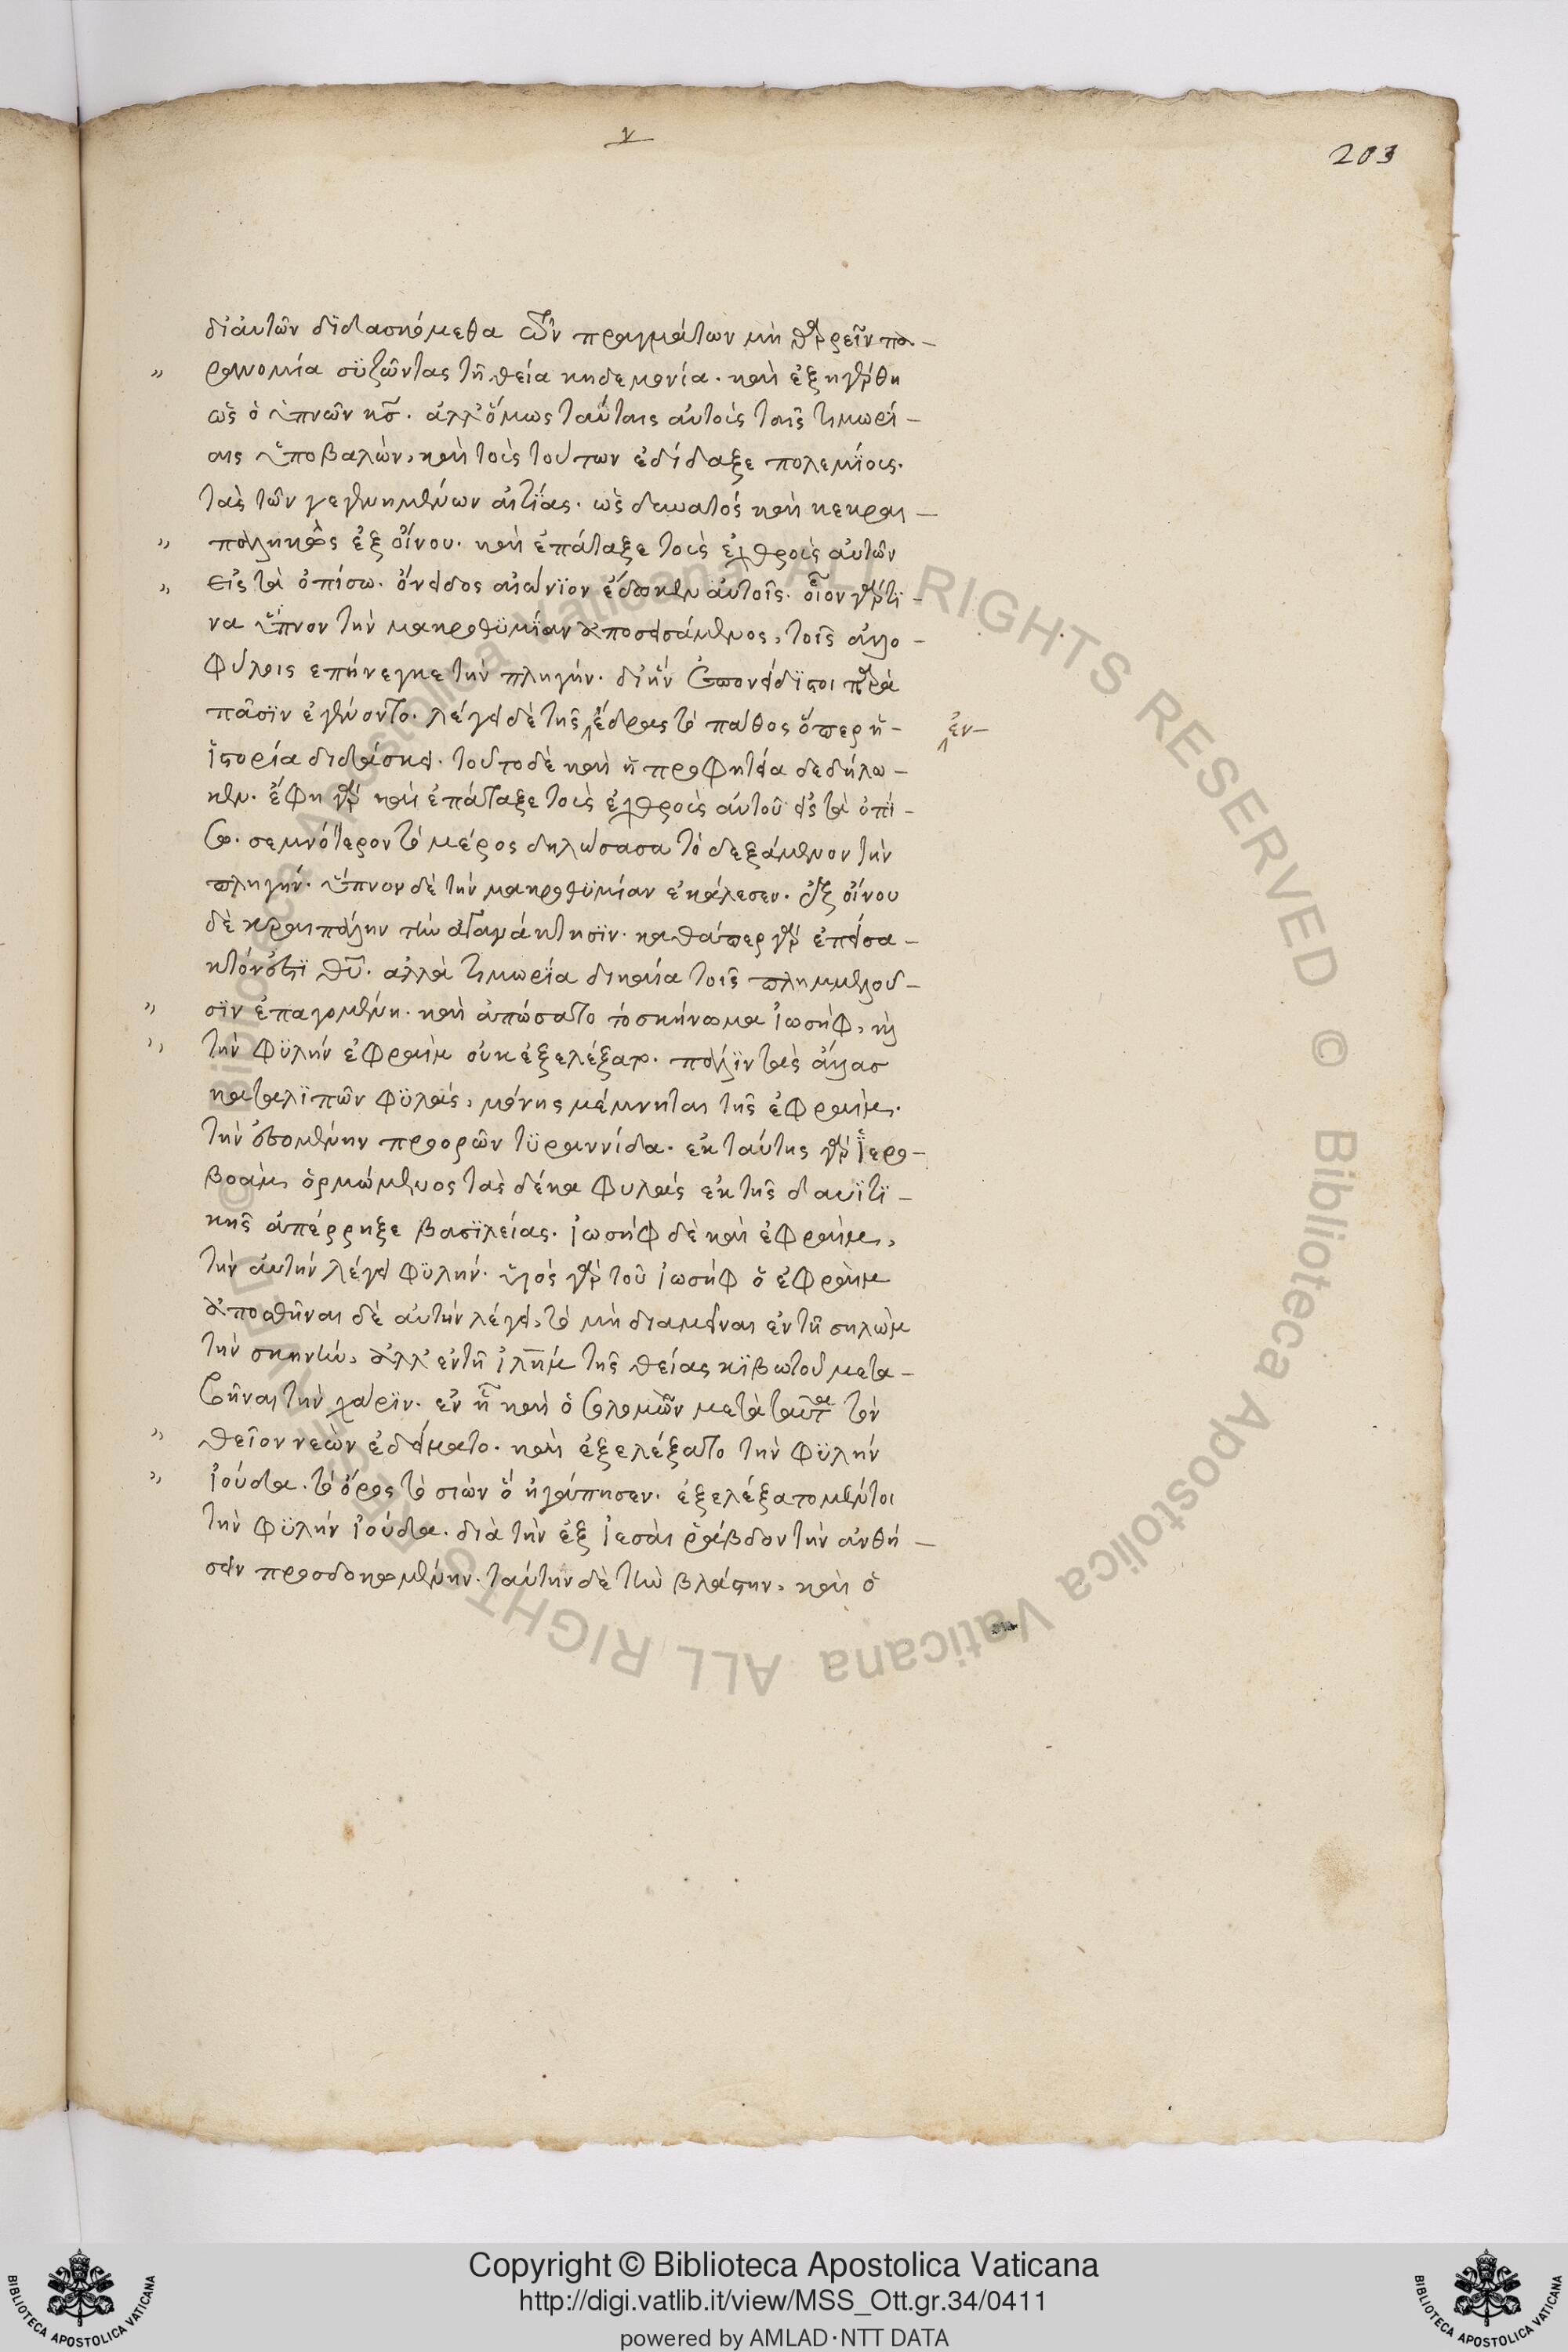 ν
203
δι' αὐτῶν διδασκόμεθα τῶν πραγμάτων μὴ θαρρεῖν πα-
" ρανομία συζῶντας τῆ θεία κηδεμονία. καὶ ἐξηγέρθη
ὡς ὁ ὑπνῶν κς. ἀλλ' ὅμως ταύταις αὐτοὺς ταῖς τιμωρί-
αις ὑποβαλὼν, καὶ τοὺς τούτων ἐδίδαξε πολεμίους.
τὰς τῶν γεγενημένων αἰτίας. ὡς δυνατός καὶ κεκραι-
" παληκὼς ἐξ οἴνου. καὶ ἐπάταξε τοὺς ἐχθροὺς αὐτῶν
" εἰς τὰ ὀπίσω. ὄνειδος αἰώνιον ἔδωκεν αὐτοῖς. οἷον γάρ τι-
να ὕπνον τὴν μακροθυμίαν ἀποσεισάμενος, τοῖς ἀλλο-
φύλοις επήνεγκε τὴν πληγήν. δι' ἣν ἐπονείδιστοι παρὰ
πᾶσιν ἐγένοντο. λέγει δὲ τῆς ἕδρας τὸ πάθος ὅπερ ἡ- ἐν-
ἱστορία διδάσκει. τοῦτο δὲ καὶ ἡ προφητεία δεδήλω-
κεν. ἔφη γάρ καὶ ἐπάταξε τοὺς ἐχθροὺς αὐτοῦ εἰς τὰ ὀπί-
σω. σεμνότερον τὸ μέρος δηλώσασα τὸ δεξάμενον τὴν
πληγήν. ὕπνον δὲ τὴν μακροθυμίαν ἐκάλεσεν. ἐξ οἴνου
δὲ κραιπάλην τὴν ἀγανάκτησιν. καθάπερ γάρ ἐπείσα-
κτόν ἐστι θυ. αλλὰ τιμωρία δικαία τοῖς πλημμελοῦ-
" σιν ἐπαγομένη. καὶ ἀπώσατο τὸ σκήνωμα ἰωσήφ, καὶ
" τὴν φυλήν ἐφραὶμ οὐκ ἐξελέξατο. πάλιν τὰς ἄλλας
καταλιπῶν φυλάς, μόνης μέμνηται τῆς ἐφραὶμ.
τὴν ἐσομένην προορῶν τυραννίδα. εκ ταύτης γάρ ἱερο-
βοὰμ ὁρμώμενος τὰς δέκα φυλάς εκ τῆς δαυϊτι-
κῆς ἀπέρρηξε βασιλείας. ἰωσήφ δὲ καὶ ἐφραὶμ,
τὴν αὐτήν λέγει φυλήν. υἱός γάρ τοῦ ἰωσήφ ὁ ἐφραὶμ
ἀποθῆναι δὲ αὐτήν λέγει, τὸ μὴ διαμεῖναι ἐν τῆ σηλὼμ
τὴν σκηνήν, ἀλλ' εν τῆ ἰλημ τῆς θείας κιβωτοῦ μετα-
βῆναι τὴν χάριν. εν ἧ καὶ ὁ σολομῶν μετὰ ταῦτα τὸν
" θεῖον νεὼν ἐδείματο. καὶ ἐξελέξατο τὴν φυλήν
" ἰούδα. τὸ ὄρος τὸ σιὼν ὃ ἠγάπησεν. ἐξελέξατο μέντοι
τὴν φυλήν ἰούδα. διὰ τὴν ἐξ ἰεσὰι ῥάβδον τὴν ἀνθή-
σειν προσδοκωμένην. ταύτην δὲ τὴν βλάστην, καὶ ὁ
Copyright © Biblioteca Apostolica Vaticana
http://digi.vatlib.it/view/MSS_Ott.gr.34/0411
powered by AMLAD·NTT DATA